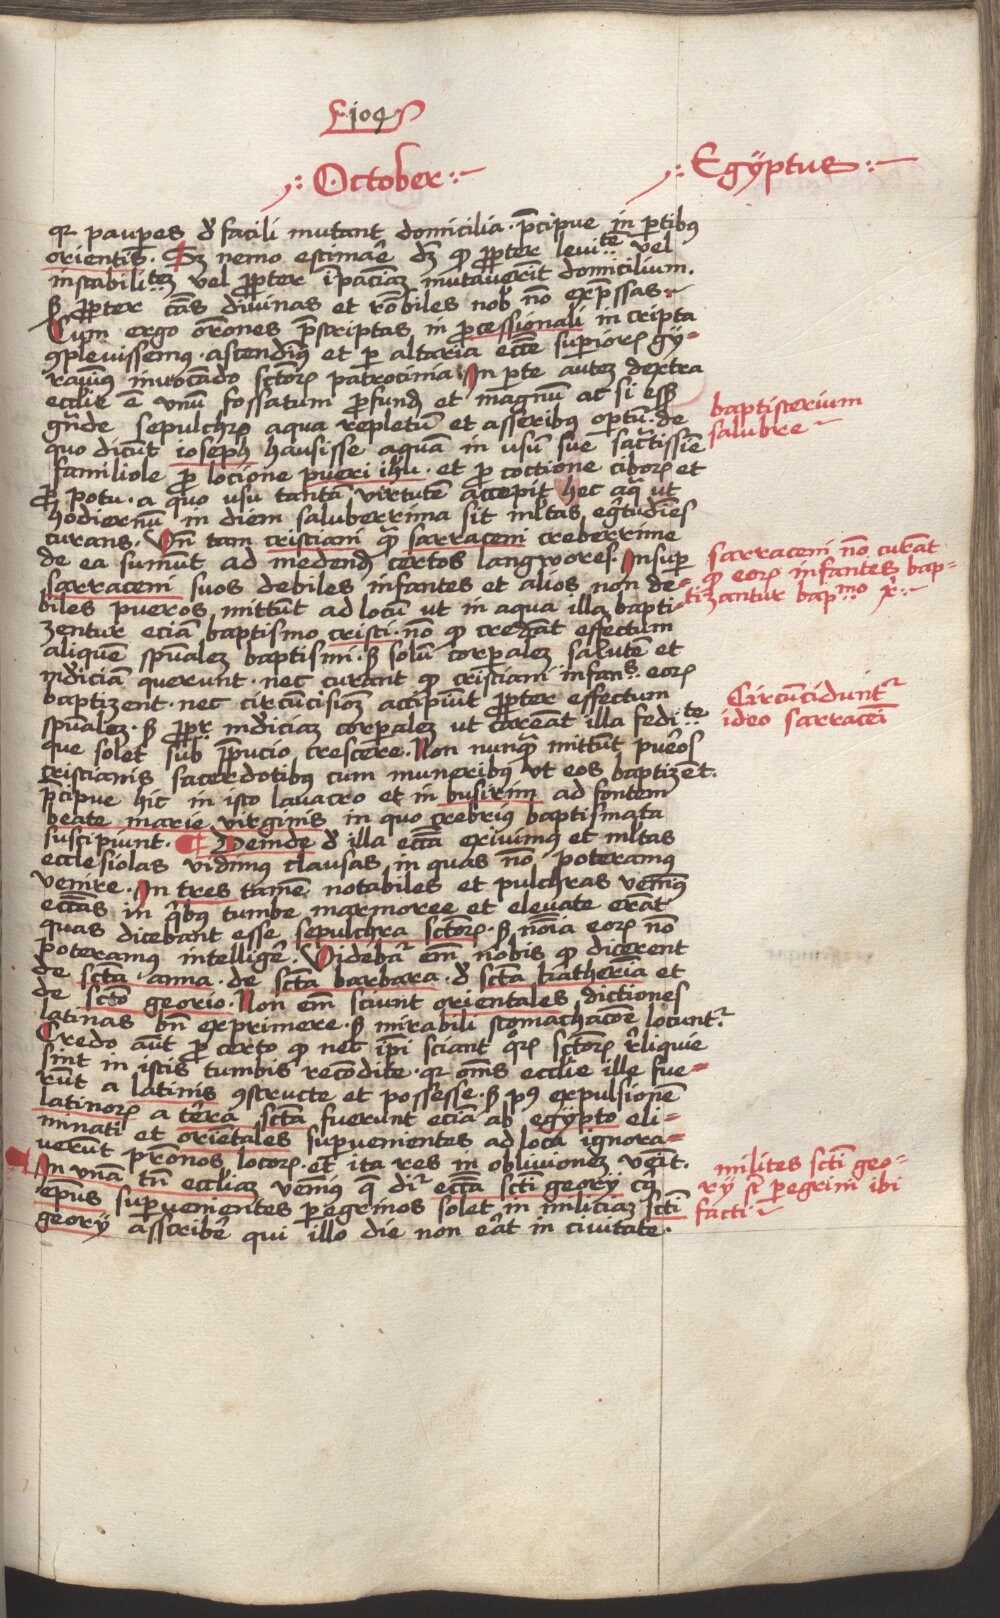 109
October
Egÿptus
qr pauperes d' facili mutant domicilia. p̄cipue in p̄tibus
orientis. Sz nemo estimaē dz̄ ꝙ ꝓpter leuitē vel
instabilitez vel ꝓpter īpaciāz mutauerīt domicilium.
ꝓpter cās diuinas et rōbiles nob̄ nō exp̄ssas
Cum ergo orōnes p̄scriptas in ꝓcessionali in cripta
ꝯpleuissemus. ascendimꝰ et per altaria ecc̄e superiorꝝ gÿ-
rauimꝰ inuocādo sctōrꝝ patrocinia In p̄te autez dextra
ecclie ē vnū fossatum ꝓfundū et magnū ac si ess̄
gn̄de sepulchrꝝ aqua repletū et asseribus optū. de
quo dicūt ioseph hausisse aquā in usū sue sāctissiē
familiole ꝓ locione pueri ihū. et ꝓ coctione ciborꝝ et
ꝓ potu. a quo usu tantā virtutē accepit hec aq̄ ut
hodiernū in diem saluberrima sit ml̄tas egͥtudīes
curans. Vn̄ tam cristiani qͣ sarraceni creberrime
de ea sumūt ad medendū certos langwores. Insuper
sarraceni suos debiles infantes et alios non de-
biles pueros mittūt ad locū ut in aqua illa bapti-
zentur eciā baptismo cristi. nō ꝙ credāt effectum
aliquē spūalez baptismi. s̄ solū corꝑalez salutē et
mūdiciā querunt. nec curant ꝙ cristiani infan.s eorꝝ
baptizent. nec circūcisiōz accipiūt ꝓpter effectum
spūalez. s̄ ꝓpr̄ mūdiciaz corꝑalez ut careāt illa fedi.te
que solet sub p̄pucio crescere. Non nunqͣ mittūt pueros
cristianis sacerdotibus cum muneribus ut eos baptizēt.
p̄cipue hic in isto lauacro et in busirim ad fontem
beate marie virginis in quo crebriꝰ baptismata
suscipiunt. Deinde d' illa ecc̄a exiuimus et ml̄tas
ecclesiolas vidimꝰ clausas in quas nō poteramus
venire. In tres tamē notabiles et pulchras venimꝰ
ecc̄as in qͥbus tumbe marmoree et eleuate erāt
quas dicebant esse sepulchra sctōrꝝ. s̄ nōia eorꝝ nō
poteramus intelligē. Videbāꝰ em̄ nobis ꝙ dicerent
de sctā anna. de sctā barbara. d' sctā katherīa et
de sctō georio. Non em̄ sciunt orientales dictiones
latinas bn̄ exprimere. s̄ mirabili stomachacōe locuntꝰ.
Credo aūt ꝓ certo ꝙ nec ip̄i sciant qͦrꝝ sctōrꝝ rͤliquie
sint in istis tumbis recōdite. qr om̄s ecclie ille fue-
rūt a latinis ꝯstructe et possesse. s̄ pꝰ expulsionē
latinorꝝ a terra sctā fuerunt eciā ab egÿpto eli-
minati et orientales superuenientes ad loca ignora-
uerūt ꝓnos locorꝝ. et ita res in obliuionez venit.
In vnā tn̄ eccliaz venimꝰ q̄ dr̄ ecc̄a sctī georÿ cꝰ
epūs superuenientes peregrinos solet in miliciaz sctī
georÿ asscribē qui illo die non erat in ciuitate.
baptisterium
salubre
sarraceni nō curāt
ꝙ eorꝝ infantes bap-
tizantur bap.mo x̄.
Circūcidunt.r
ideo sarracēi
milites sctī geo-
rÿ sͥ peregrini ibi
facti